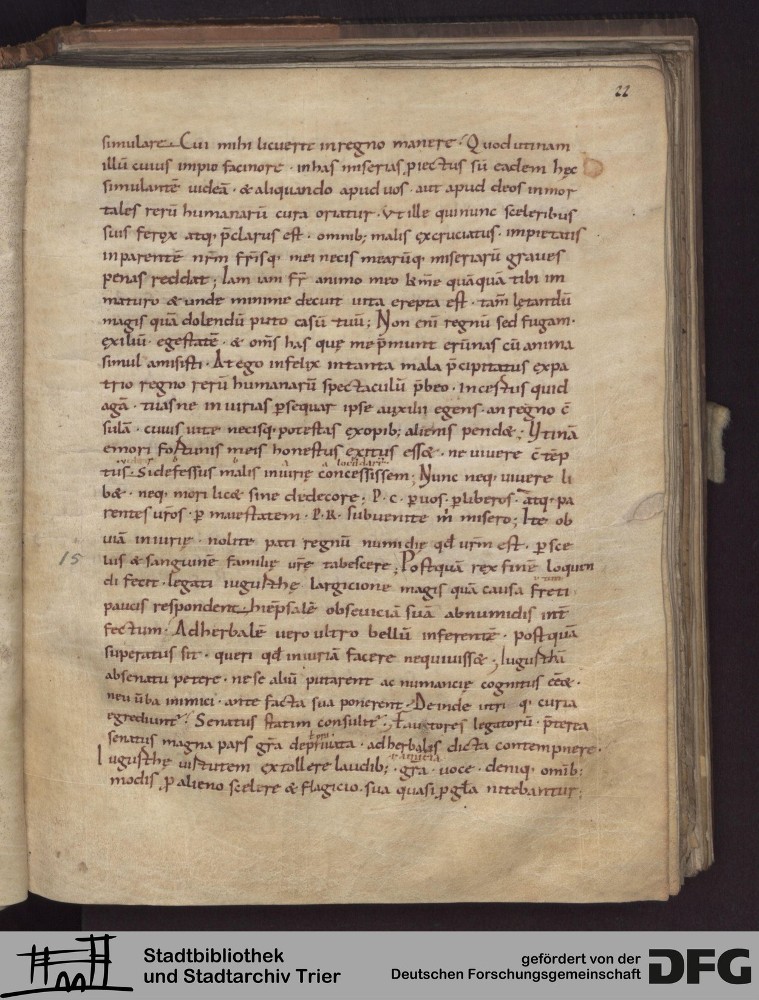 22
simulare. Cui mihi licuerit in regno manere. Quod utinam
illū cuius impio facinore · in has miserias ꝓiectus sū eadem hęc
simulantē uideā · & aliquando apud uos · aut apud deos inmor
tales rerū humanarū cura oriatur · Vt ille qui nunc sceleribus
suis ferox atq; p̄clarus est · omnib; malis excruciatus · impietatis
in parentē nr̄m fr̄isq· mei necis mearūq· miseriarū graues
penas reddat; Iam iam fr̄ animo meo k̄me quāquā tibi im
maturo & unde minime decuit uita erepta est · tam̄ lętandū
magis quā dolendū puto casū tuū; Non eni regnū sed fugam·
exiliū· egestatē· & om̄s has quę me p̄munt erūnas cū anima
simul amisisti· At ego infelix in tanta mala p̄cipitatus ex pa
trio regno rerū humanarū spectaculū p̄beo· incertus quid
agā· tuas ne iniurias ꝑsequar ipse auxilii egens· an regno c̄
sulā· cuius uitę necisq· potestas ex opib; alienis pend&; Vtinā
emori fortunis meis honestus exitus ess&· ne uiuere c̄tēp
tus· si defessus malis iniurię concessissem; Nunc neq· uiuere li
b&· neq· mori lic& sine dedecore; P· c· ꝑ uos· ꝑ liberos· atq· pa
rentes uros· ꝑ maiestatem· P·R· subuenite m̄ misero; Ite ob
uiā iniurię· nolite pati regnū numidię qd̄ ur̄m est· ꝑ sce
15
lus & sanguinē familię ur̄ę tabescere; Postquā rex finē loquen
di fecit· legati iugurthę largicione magis quā causa freti·
paucis respondent hiēpsalē ob seuiciā suā ab numidis int̄
fectum· Adherbalē uero ultro bellū inferentē· postquā
superatus sit· queri qd̄ iniuriā facere nequiuiss&; Iugurthā
ab senatu petere· ne se aliū putarent ac numancię cognitus ēē&·
neu ūba inimici· ante facta sua ponerent; Deinde utri q· curia
egrediunt̄; Senatus statim consulit̄; Fautores legatorū· p̄terea
senatus magna pars gr̄a deprauata· adherbalis dicta contempnere·
Iugurthę uirtutem extollere laudib;· gr̄a· uoce· deniq· omīb;
modis ꝓ alieno scelere & flagicio· sua quasi ꝓ gl̄a nitebantur;
Stadtbibliothek
und Stadtarchiv Trier
gefördert von der
Deutschen Forschungsgemeinschaft
DFG